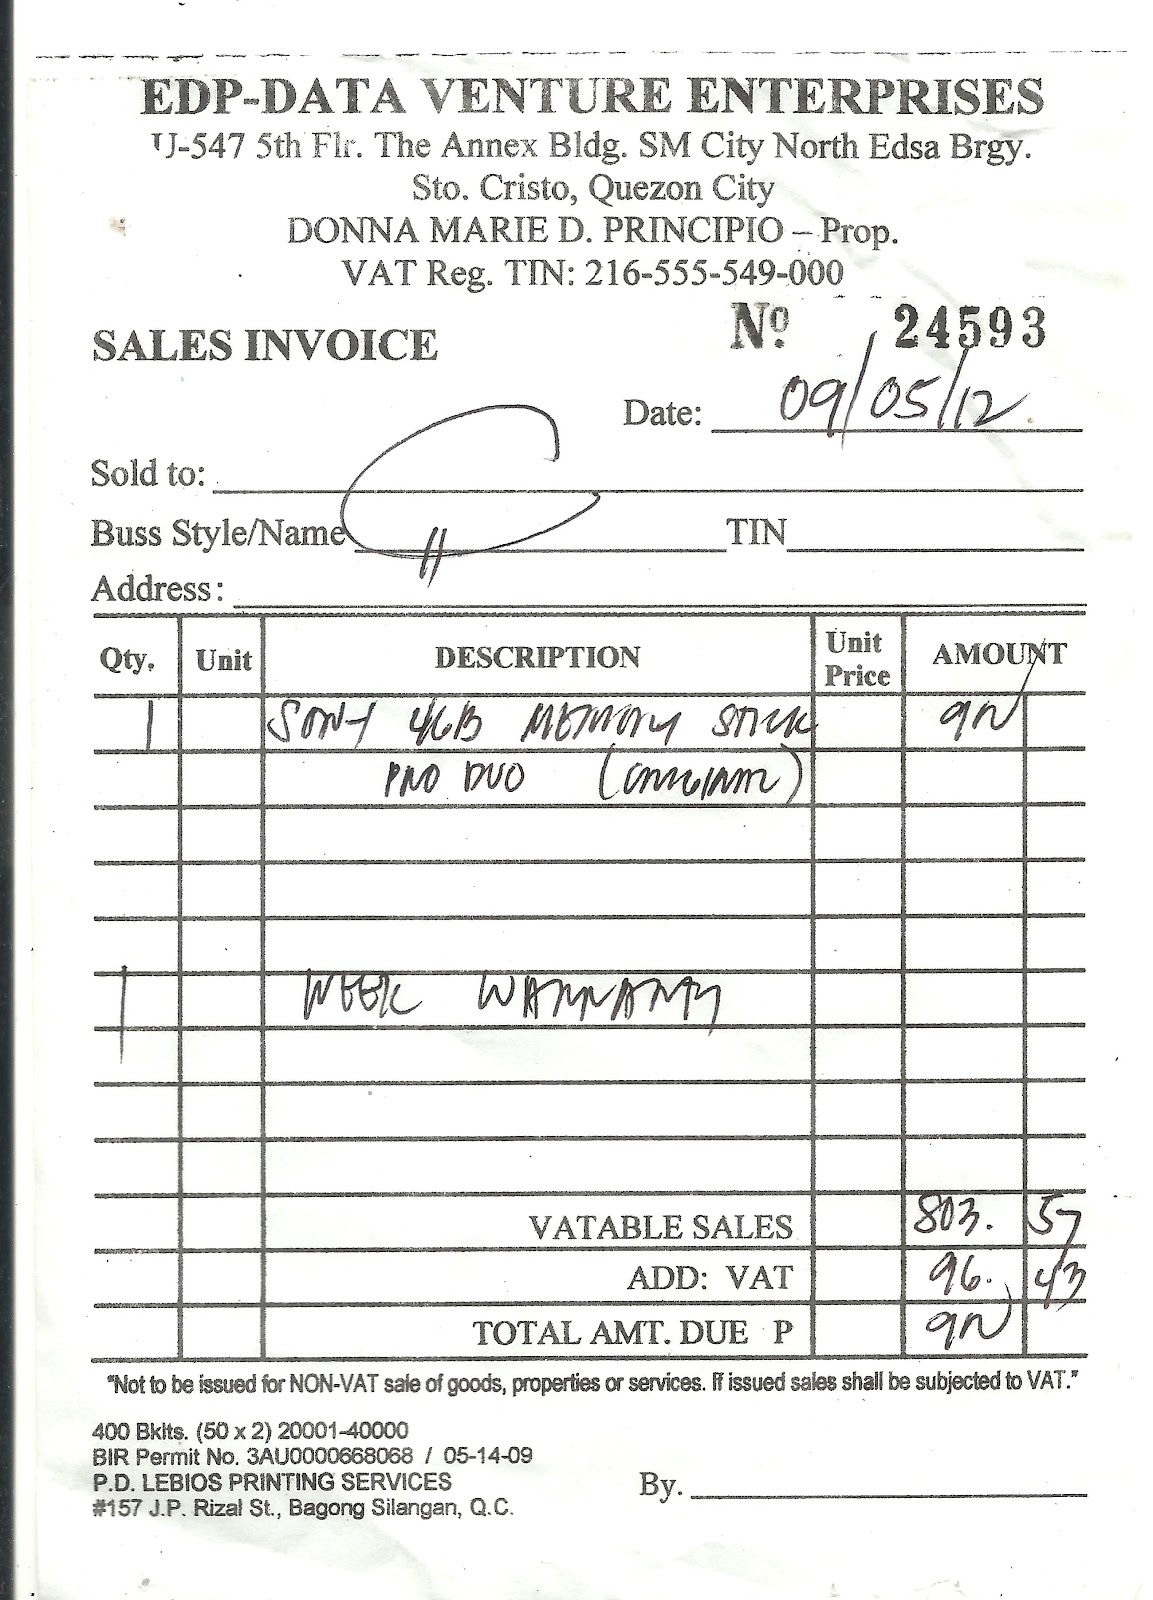 EDP-DATA VENTURE ENTERPRISES
U-547 5th Flr. The Annex Bldg. SM City North Edsa Brgy.
Sto. Cristo, Quezon City
DONNA MARIE D. PRINCIPIO – Prop.
VAT Reg. TIN: 216-555-549-000
SALES INVOICE Nº 24593
Date: 09/05/12
Sold to:
Buss Style/Name TIN
Address:
Qty. Unit DESCRIPTION Unit Price AMOUNT
1 SONY 4GB MEMORY STICK
PRO DUO (ORIGINAL)
1 WEEK WARRANTY
VATABLE SALES 803. 57
ADD: VAT 96. 43
TOTAL AMT. DUE P
"Not to be issued for NON-VAT sale of goods, properties or services. If issued sales shall be subjected to VAT."
400 Bklts. (50 x 2) 20001-40000
BIR Permit No. 3AU0000668068 / 05-14-09
P.D. LEBIOS PRINTING SERVICES
#157 J.P. Rizal St., Bagong Silangan, Q.C.
By.